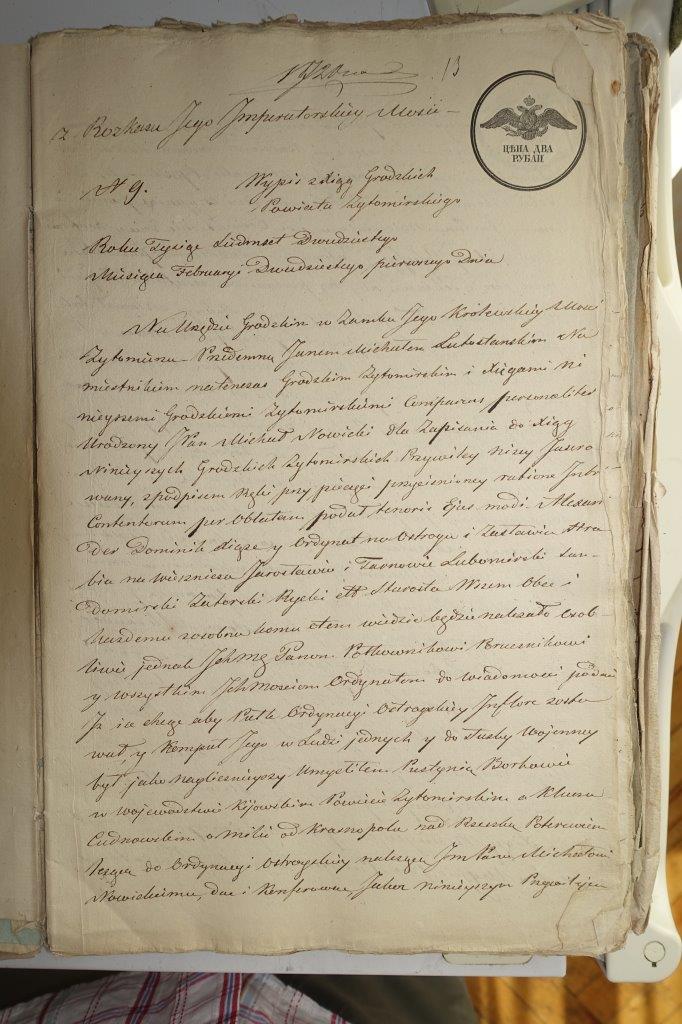 1720 13
z Rozkazu Jego Imperatorskiey Mości
ЦѢНА ДВА
РУБЛИ
N 9. Wypis z Xiąg Grodzkich
Powiatu Zytomirskiego
Roku Tysiąc Siedmset Dwudziestego
Miesiąca February Dwudziestego pierwszego Dnia
Na Urzędzie Grodzkim w Zamku Jego Królewskiey Mości
Zytomirzu Przedemną Janem Michałem Lutostanskim Na
miestnikiem natenczas Grodzkim Zytomirskim i Xięgami Ni
nieyszemi Grodzkiemi Zytomirskiemi Comparens personaliter
Urodzony Pan Michał Nowicki dla Zapisania do Xiąg
Ninieyszych Grodzkich Zytomirskich Przywiley niżey
wany, z podpisem Ręki przy pieczęci przyciśnioney ratione
Contentorum per Oblatam podał tenoris Ejus modi Alexan
der Dominik Xiąże y Ordynat na Ostrogu i Zasławiu Hra
bia na Wiśniczu Jarosławiu i Tarnowie Lubomirski San
Domirski Zatorski Rycki ett Starosta Wszem Obec i
Każdemu zosobna komu otem wiedzieć będzie należało Osob
liwie jednak Ichmę Panom Półkownikowi
y wszystkim Ichmościom Ordynatom do wiadomości podaię
Iż ia chcąc aby Pułk Ordynacyi Ostrogskiey Inflore zosta
wał, y Komput Jego w Ludzi jednych y do służby Wojenney
był jako nayliczniejszy Umyśliłem Pustynią Borkowie
w Wojewodztwie Kijowskim Powiecie Zytomirskim a Kluczu
Cudnowskim o milie od Krasnopola nad Rzeczką
do Ordynacyi Ostrogskiey należącą Jm Panu Michałowi
Nowickiemu, dać i Konferować, Jakoż ninieyszym